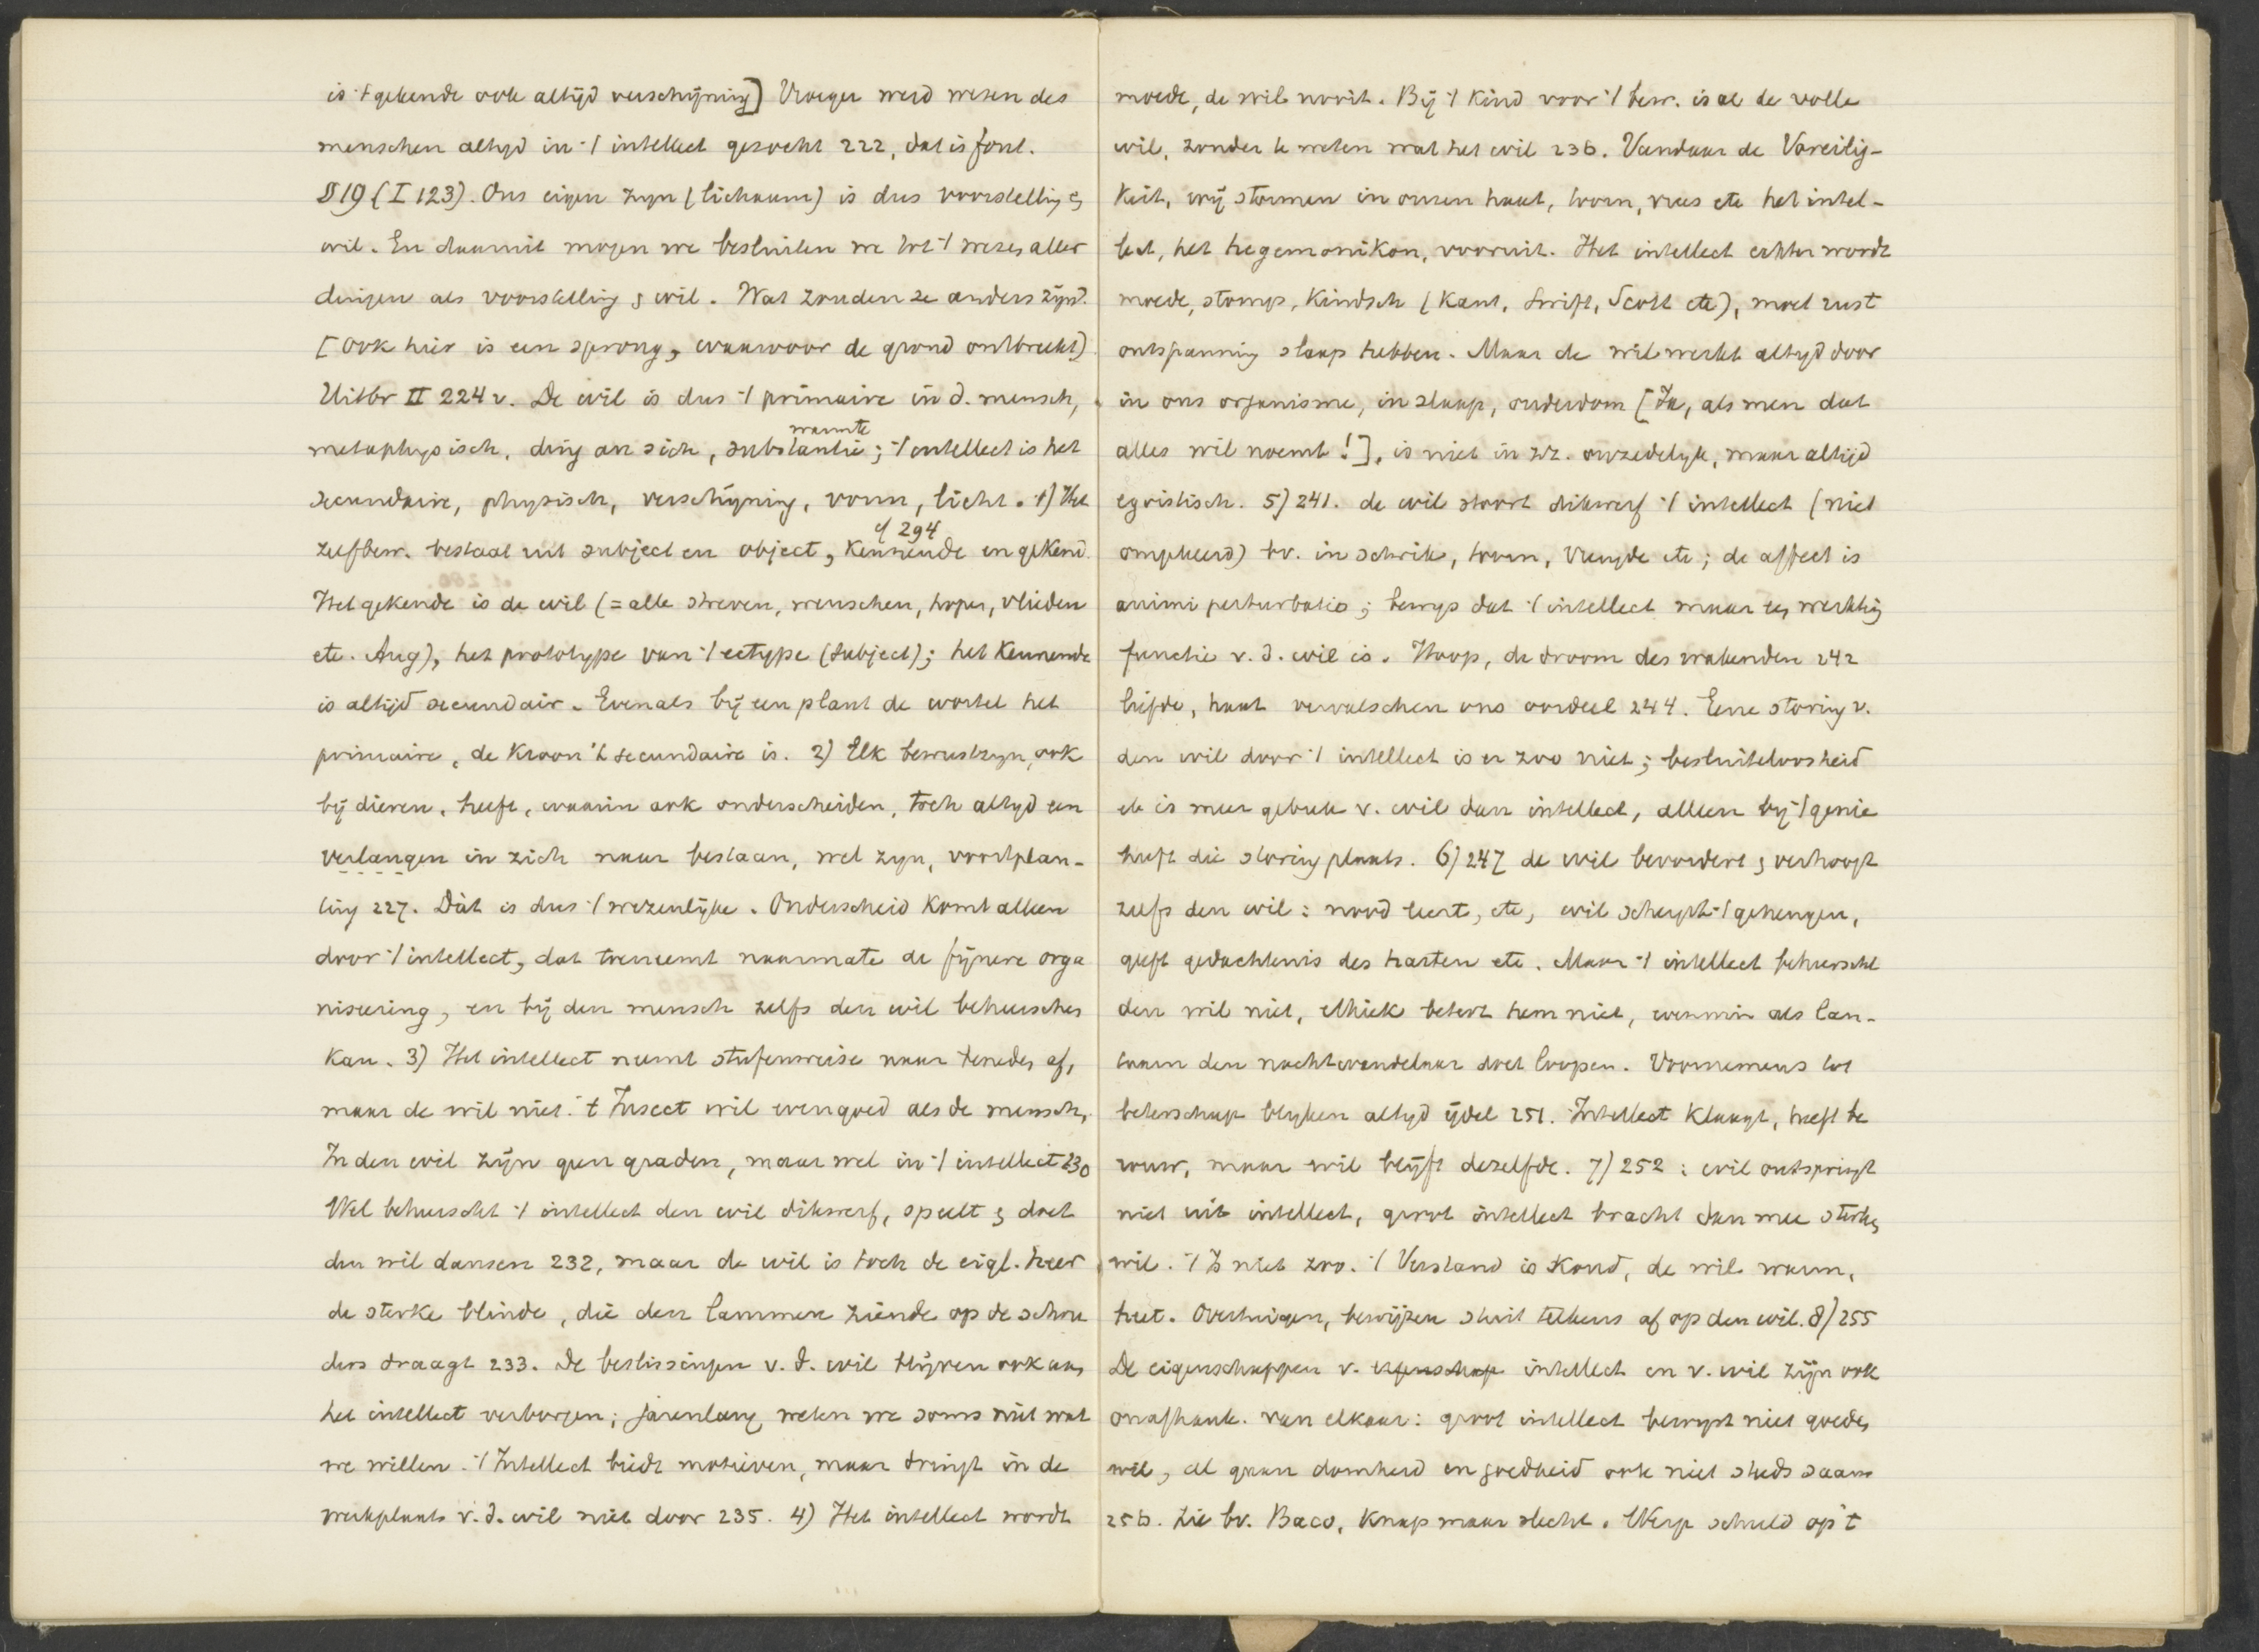 is 't gekende ook altijd verschijning] Vroeger werd wezen des
menschen altyd in 't intellect gezocht 222, dat is fout.
§ 19 (I 123). Ons eigen zyn (lichaam) is dus voorstelling &
wil. En daaruit mogen we besluiten we tot 't wezen aller
dingen als voorstelling & wil. Wat zouden ze anders zijn?
[Ook hier is een sprong, waarvoor de grond ontbreekt]
Uitbr II 224 v. De wil is dus 't primaire in d. mensch,
metaphysisch, ding an sich, substantie; 't intellect is het
warmte
secundaire, physisch, verschijning, vorm, licht. 1) Het
zelfbew. bestaat uit subject en object, kennende en gekend.
cf 294
Het gekende is de wil (= alle streven, wenschen, hopen, vlieden
etc. Aug), het prototype van 't ectype (subject); het kennende
is altijd secundair. Evenals bij een plant de wortel het
primaire, de kroon 't secundaire is. 2) Elk bewustzyn, ook
bij dieren, heeft, waarin ook onderscheiden, toch altyd een
verlangen in zich naar bestaan, wel zyn, voortplan-
ting 227. Dàt is dus 't wezenlijke. Onderscheid komt alleen
door 't intellect, dat toeneemt naarmate de fijnere orga
niseering, en bij den mensch zelfs den wil beheerschen
kan. 3) Het intellect neemt stufenweise naar beneden af,
maar de wil niet. 't Insect wil evengoed als de mensch,
In den wil zijn geen graden, maar wel in 't intellect 230
Wel beheerscht 't intellect den wil dikwerf, speelt & doet
den wil dansen 232, maar de wil is toch de eigl. heer
de sterke blinde, die den lammen ziende op de schou
ders draagt 233. De beslissingen v. d. wil blijven ook aan
het intellect verborgen; jarenlang weten we soms niet wat
we willen. 't Intellect biedt motieven, maar dringt in de
werkplaats v. d. wil niet door 235. 4) Het intellect wordt
moede, de wil nooit. Bij 't kind voor 't bew. is al de volle
wil, zonder te weten wat het wil 236. Vandaar de Voreilig-
keit, wij stormen in onzen haat, toorn, vrees etc het intel-
lect, het hegemonikon, vooruit. Het intellect echter wordt
moede, stomp, kindsch (Kant, Swift, Scott etc), moet rust
ontspanning slaap hebben. Maar de wil werkt altyd door
in ons organisme, in slaap, ouderdom [Ja, als men dat
alles wil noemt!], is niet in zz. onzedelyk, maar altijd
egoistisch. 5) 241. de wil stoort dikwerf 't intellect (niet
omgekeerd) bv. in schrik, toorn, vreugde etc; de affect is
animi perturbatio; bewys dat 't intellect maar een werktuig
functie v. d. wil is. Hoop, de droom des wakenden 242
liefde, haat vervalschen ons oordeel 244. Eene storing v.
den wil door 't intellect is er zoo niet; besluiteloosheid
etc is meer gebrek v. wil dan intellect, alleen bij 't genie
heeft die storing plaats. 6) 247 de wil bevordert & verhoogt
zelfs den wil: nood leert, etc, wil scherpt 't geheugen,
geeft gedachtenis des harten etc. Maar 't intellect beheerscht
den wil niet, ethiek betert hem niet, evenmin als lan-
taarn den nachtwandelaar doet loopen. Voornemens tot
beterschap blyken altyd ijdel 251. Intellect klaagt, heeft be
rouw, maar wil blijft dezelfde. 7) 252: wil ontspringt
niet uit intellect, groot intellect bracht dan mee sterken
wil. 't Is niet zoo. 't Verstand is koud, de wil warm,
heet. Overtuigen, bewijzen stuit telkens af op den wil. 8) 255
De eigenschappen v. eigenschap intellect en v. wil zijn ook
onafhank. van elkaar: groot intellect bewyst niet goeden
wil, al gaan domheid en goedheid ook niet steeds saam
256. Zie bv. Baco, knap maar slecht. Werp schuld op 't